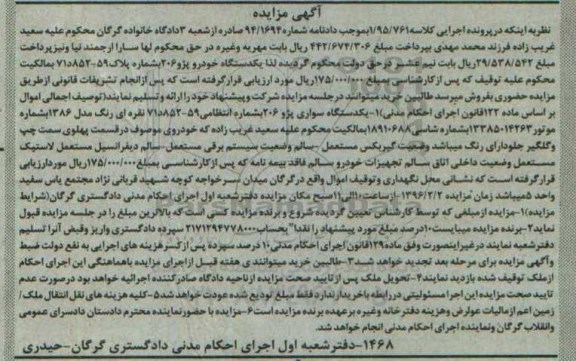 آگهی مزایده
نظربه اینکه درپرونده اجرایی کلاسه ۹۵/۷۶۱/۱بموجب دادنامه شماره ۹۴/۱۶۹۴ صادره ازشعبه ۳دادگاه خانواده گرگان محکوم علیه سعید
غریب زاده فرزند محمد مهدی بپرداخت مبلغ ۴۴۲/۶۷۴/۳۰۶ ریال بابت مهریه وغیره در حق محکوم لها سارا ارجمند نیا ونیزپرداخت
مبلغ ۲۹/۵۳۸/۵۴۲ریال بابت نیم عشر در حق دولت محکوم گردیده لذا یکدستگاه خودرو پژو۲۰۶ بشماره پلاک ۵۹-۸۵۲د۷۱ بمالکیت
محکوم علیه توقیف که پس ازکارشناسی بمبلغ ۱۷۵/۰۰۰/۰۰۰ریال مورد ارزیابی قرارگرفته است که پس ازانجام تشریفات قانونی ازطریق
مزایده حضوری بفروش میرسد طالبین خرید میتوانند درجلسه مزایده شرکت وپیشنهاد خود را ارائه وتسلیم نمایند(توصیف اجمالی اموال
بر اساس ماده ۱۲۲قانون اجرای احکام مدنی)۱-یکدستگاه سواری پژو ۲۰۶ بشماره انتظامی۵۹-۸۵۲د۷۱ نقره ای رنگ مدل ۱۳۸۶ بشماره
موتور۱۳۳۸۵۰۱۴۲۶۳ بشماره شاسی ۱۸۹۱۰۶۸۸ بمالکیت محکوم علیه سعید غریب زاده که خودروی موصوف درقسمت پهلوی سمت چپ
وگلگیر جلودارای رنگ میباشد وضعیت گیربکس مستعمل -سالم وضعیت سیستم برقی مستعمل -سالم دیفرانسیل مستعمل لاستیک
مستعمل وضعیت داخلی اتاق سالم تجهیزات خودرو سالم فاقد بیمه نامه که پس ازکارشناسی بمبلغ ۱۷۵/۰۰۰/۰۰۰ریال موردارزیابی
قرارگرفته است که نشانی محل نگهداری وتوقیف اموال واقع درگرگان میدان سرخواجه کوچه شهید قربانی نژاد مجتمع یاس سفید
واحد ۵میباشد زمان مزایده ۱۳۹۶/۲/۲ -ازساعت۱۰الی۱۱صبح مکان مزایده دفترشعبه اول اجرای احکام مدنی دادگستری گرگان(شرایط
مزایده)۱-مزایده ازمبلغی که توسط کارشناس تعیین گردیده شروع و برنده مزایده کسی است که بالاترین مبلغ را در جلسه مزایده قبول
نماید ۲-برنده مزایده میبایست۱۰درصد مبلغ مورد پیشنهاد را نقدا" بحساب ۲۱۷۱۲۹۴۷۷۸۰۰۰ سپرده دادگستری واریز وقبض آنرا تسلیم
دفترشعبه نمایند درغیراینصورت وفق ماده ۱۲۹قانون اجرای احکام مدنی۱۰درصد سپرده پس ازکسرهزینه های اجرایی به نفع دولت ضبط
وآگهی مزایده برای مرحله بعد تجدید خواهد شد۳-طالبین خرید میتوانند ی هفته قبل ازاجرای مزایده باهماهنگی این اجرای احکام
ازملک توقیف شده بازدید نمایند۴-تحویل ملک پس ازتایید صحت مزایده ازناحیه دادگاه صادرکننده اجرائیه خواهد بود درصورت عدم
تایید صحت مزایده این اجرا مسئولیتی دررابطه باخریدارندارد فقط مبلغ تودیع شده عودت خواهد شد۵-کلیه هزینه های نقل انتقال ملک/
زمین اعم ازمالیات عوارض وهزینه دفترخانه وغیره برعهده برنده مزایده است۶-مزایده با حضورنماینده محترم دادستان دادسرای عمومی
وانقلاب گرگان ونماینده اجرای احکام مدنی انجام خواهد شد.
۱۴۶۸-دفترشعبه اول اجرای احکام مدنی دادگستری گرگان-حیدری